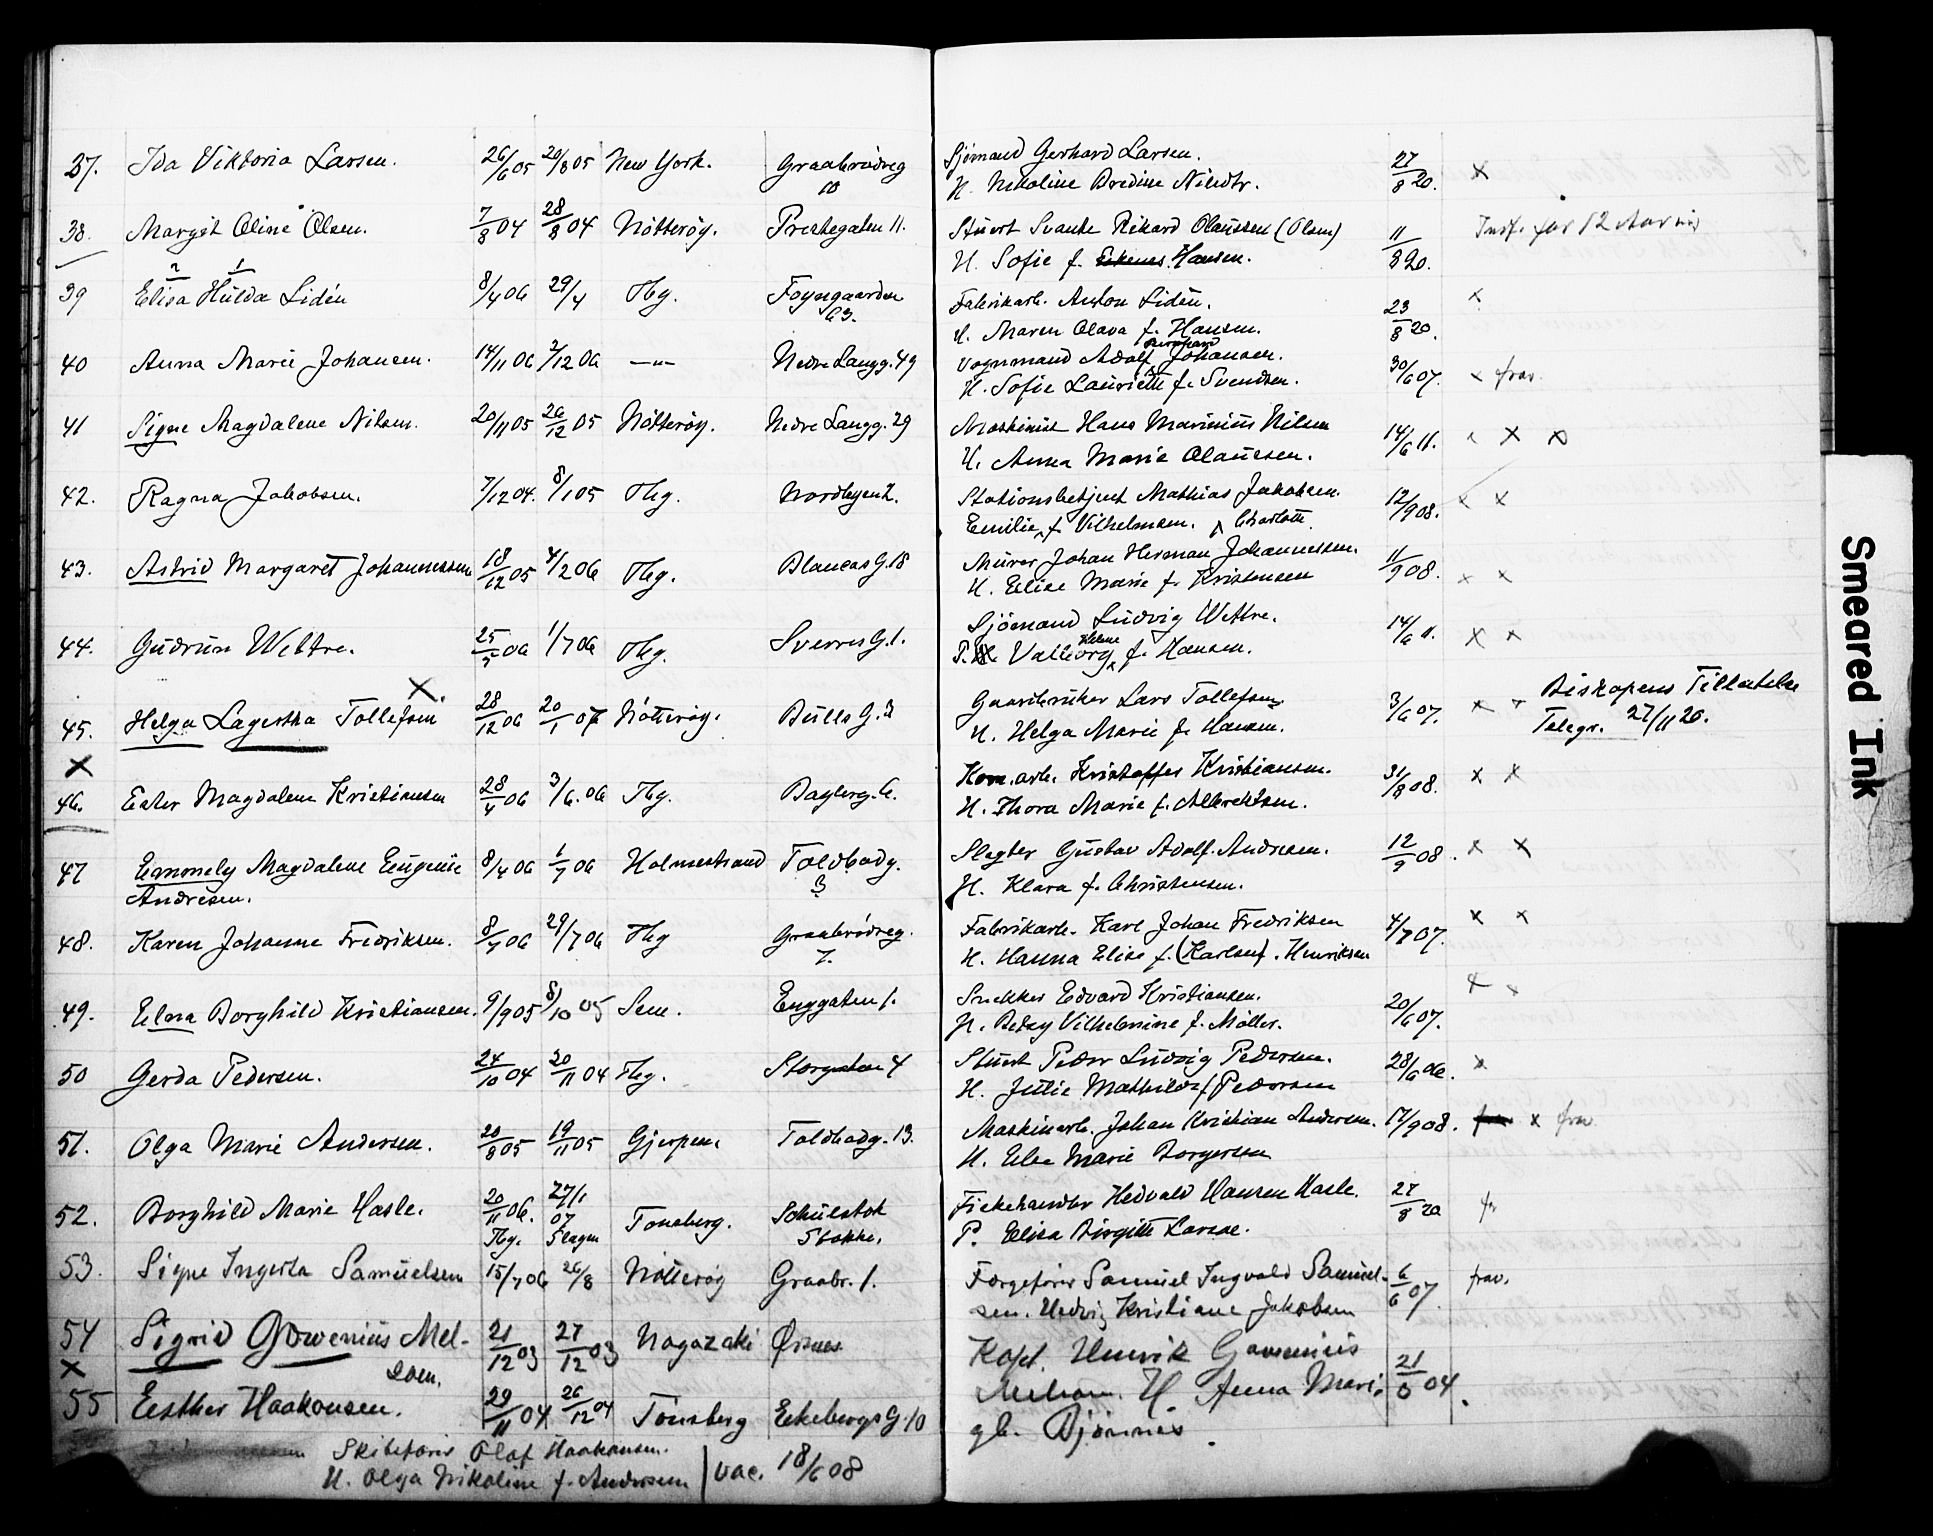 37. Ida Viktoria Larsen. 26/6 05 20/8 05 New York. Graabrødreg 10 Sjømand Gerhard Larsen. 27/8 20. x
H. Nikoline Bredine
38. Margit Oline Olsen. 7/8 04 28/8 04 Nøtterøy. Prestegaten 11. Stuert Svante Rikard Olaussen (Olsen) 11/8 20. for 12 Aar
H. Sofie f. Hansen.
2 1
39 Elisa Hulda Lidén 8/4 06 29/4 Tbg. Foyngaarden 63. Fabrikarb. Anton Lidén. 23/8 20. x
H. Maren Olava f. Hansen.
40 Anna Marie Johansen. 14/11 06 2/12 06 —"— Nedre Langg. 49 Vognmand Adolf Johansen. 30/6 07. x frav.
H. Sofie Lauriette f. Svendsen.
41 Signe Magdalene Nilsen. 20/11 05 26/12 05 Nøtterøy. Nedre Langg. 29 Maskinist Hans Marinius Nilsen 14/6 11. x x x
H. Anna Marie Olaussen.
42. Ragna Jakobsen. 7/12 04. 8/1 05 Tbg. Nordbyen 2. Stationsbetjent Mathias Jakobsen. 12/9 08. x x
Emilie, f. Vilhelmsen. Charlotte.
43. Astrid Margaret Johannessen 18/12 05 4/2 06 Tbg. Blancas G. 18 Murer Johan Herman Johannessen. 11/9 08. x x
H. Elise Marie f. Kristensen
44. Gudrun Wettre. 25/5 06 1/7 06 Tbg. Sverres G. 1. Sjømand Ludvig Wettre. 14/6 11. x x
P. Valborg Helene f. Hansen.
x.
45. Helga Lagertha Tollefsen 28/12 06 20/1 07 Nøtterøy. Bulls G. 2 Gaardbruker Lars Tollefsen 3/6 07. x x Biskopens Tilladelse
H. Helga Marie f. Hansen. Telegr. 27/11 20.
x
46. Ester Magdalene Kristiansen 28/4 06 3/6. 06 Tbg. Bagberg. 6. Kom. arb. Kristoffer Kristiansen. 31/8 08. x x
H. Thora Marie f. Albrektsen.
47 Emmely Magdalene Eugenie 8/4 06 1/7 06 Holmestrand Toldbodg. 3 Slagter Gustav Adolf Andresen. 12/9 08. x x
Andresen. H. Klara f. Christensen.
48. Karen Johanne Fredriksen. 8/7 06 29/7 06 Tbg Graabrødreg. 7. Fabrikarb. Karl Johan Fredriksen 4/7 07. x x
H. Hanna Elise f. (Karlsen). Henriksen
49. Elna Borghild Kristiansen. 9/9 05 8/10 05 Sem. Enggaten 1. Snekker Edvard Kristiansen. 20/6 07. x x
H. Betsy Vilhelmine f. Møller.
50 Gerda Pedersen. 24/10 04 20/11 04 Tbg. Storgaten 4 Stuert Peder Ludvig Pedersen. 28/6 06. x
H. Julie Mathilde f. Pedersen
51. Olga Marie Andersen. 20/8 05 19/11 05 Gjerpen. Toldbodg. 13. Maskinarb. Johan Kristian Andersen. 17/9 08. x frav
H. Else Marie Borgersen
52. Borghild Marie Hasle. 20/11 06. Tbg. 27/1 07 Slagen Tønsberg. Schulstok Stokke. Fiskehandler Hedvald Hansen Hasle. 27/8 20 fr
P. Elisa Birgitte Larsae.
53. Signe Ingerta Samuelsen 15/7 06 26/8 Nøtterøy Graabr. 1. Færgefører Samuel Ingvald Samuel- 6/6 07. frav.
sen. Hedvig Kristiane Jakobsen
54 Sigrid Gowenius Mel- 21/12 03 27/12 03 Nagazaki Ørsnes Kapt. Henrik Gowenius 21/6 04.
x som. Melsom. H Anna Marie
55 Esther Haakonsen. 29/11 04 26/12 04 Tønsberg Ekebergs G. 10 gb. Bjønnes.
Skibsfører Olaf Haakonsen.
H. Olga Nikoline f. Andersen | vac. 18/6 08
Smeared Ink